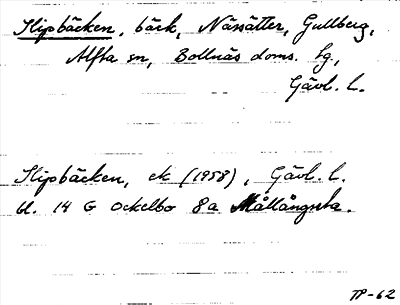 Slipbäcken, bäck, Nässätter, Gullberg,
Alfta sn, Bollnäs doms. tg,
Gävl. L.
Slipbäcken, ek (1958), Gävl. l.
bl. 14 G Ockelbo 8a Mållångsta.
TP-62